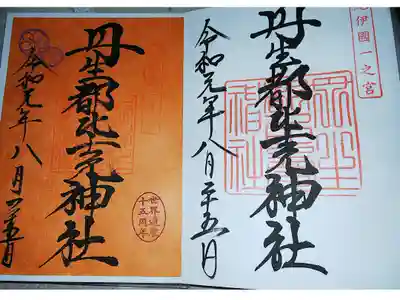 紀伊國一之宮
丹生都比売神社
令和元年八月二十五日
丹生都比売神社
令和元年八月二十五日
世界遺産
十五周年